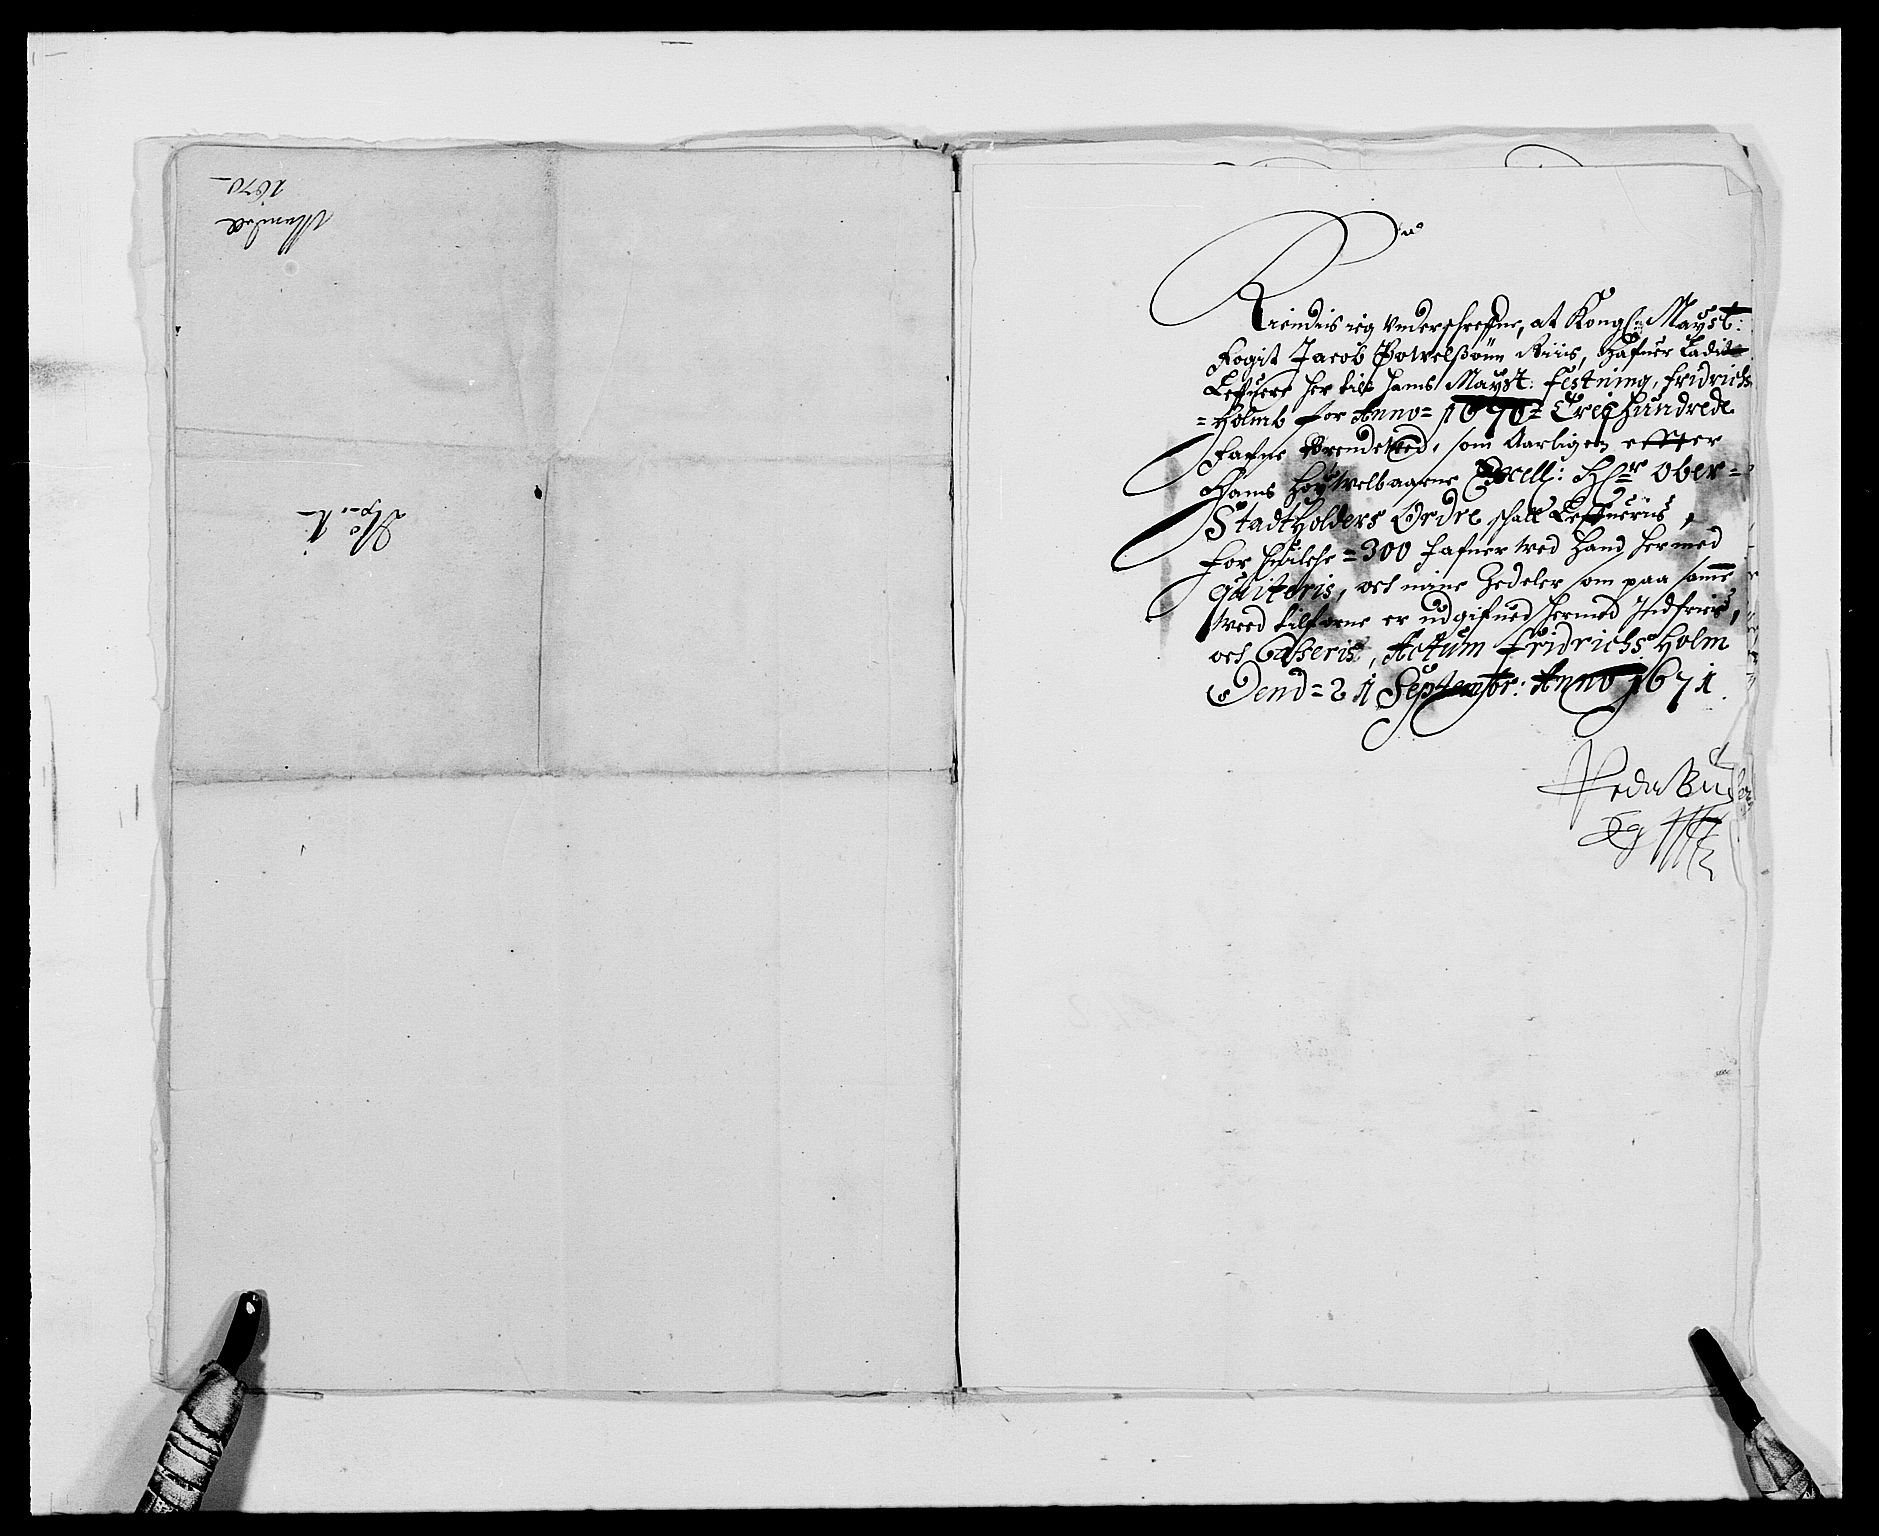 1670
Kiendis ieg Underschrefne, at Kongl: Mayst:
Fogit Jacob Powelßønn Riiis, Hafuer Ladit
Leffuere her till Hans Mayst: festning, fridrichs
=Holmb for Anno= 1670= Trei hundrede
Fafne Brendeved, som Aarligen effter
Hans Høy Welbaarne Excell: H:r Ober=
Stadtholders Ordre schall Leffueris,
for huilche =300 fafner wed Hand hermed
quiteris, och mine Zedeler som paa samme
weed tilforne er udgifued hermed Indfriis,
och Casseris, Actum fridrichs Holm
Dend= 21 Septembr: Anno 1671.